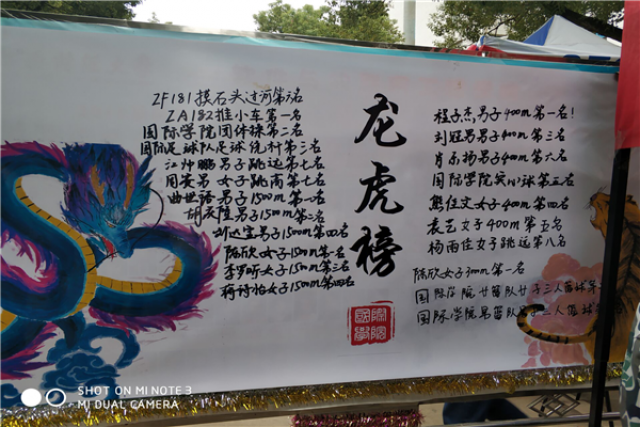 ZF181摸石头过河第六名
ZA182推小车第一名
国际学院团体操第二名
国际足球队足球绕杆第三名
男子跳远第七名
女子跳高第七名
男子1500m第一名
男子1500m第二名
男子1500m第四名
陈欣女子1500m第一名
女子1500m第三名
蒋诗怡女子1500m第四名
龙虎榜
國際學院
程子杰,男子400m第一名!
刘冠男男子400m第三名
肖东扬男子400m第六名
国际学院实心球第五名
熊佳文女子400m第四名
袁艺女子400m第五名
杨雨佳女子跳远第八名
陈欣女子 第一名
国际学院女篮队女子三人篮球
国际学院男篮队男子三人篮球
SHOT ON MI NOTE 3
MI DUAL CAMERA